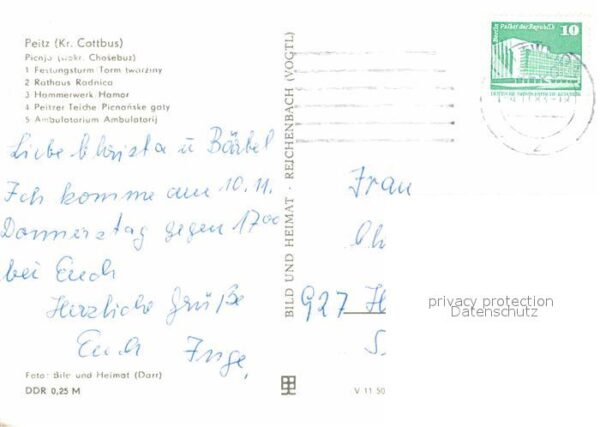 Peitz (Kr. Cottbus)
Picnjo (wokr. Chośebuz)
1 Festungsturm Torm twarziny
2 Rathaus Radnica
3 Hammerwerk Hamor
4 Peitzer Teiche Picnańske gaty
5 Ambulatorium Ambulatorij
Liebe Christa u Bärbel
Ich komme am 10.11.
Donnerstag gegen 1700
bei Euch
Herzliche Grüße
Euch Inge,
Foto: Bild und Heimat (Darr)
DDR 0,25 M
BILD UND HEIMAT · REICHENBACH (VOGTL)
V 11 50
Berlin Palast der Republik
10
Frau
Ch
927 H
S.
privacy protection
Datenschutz